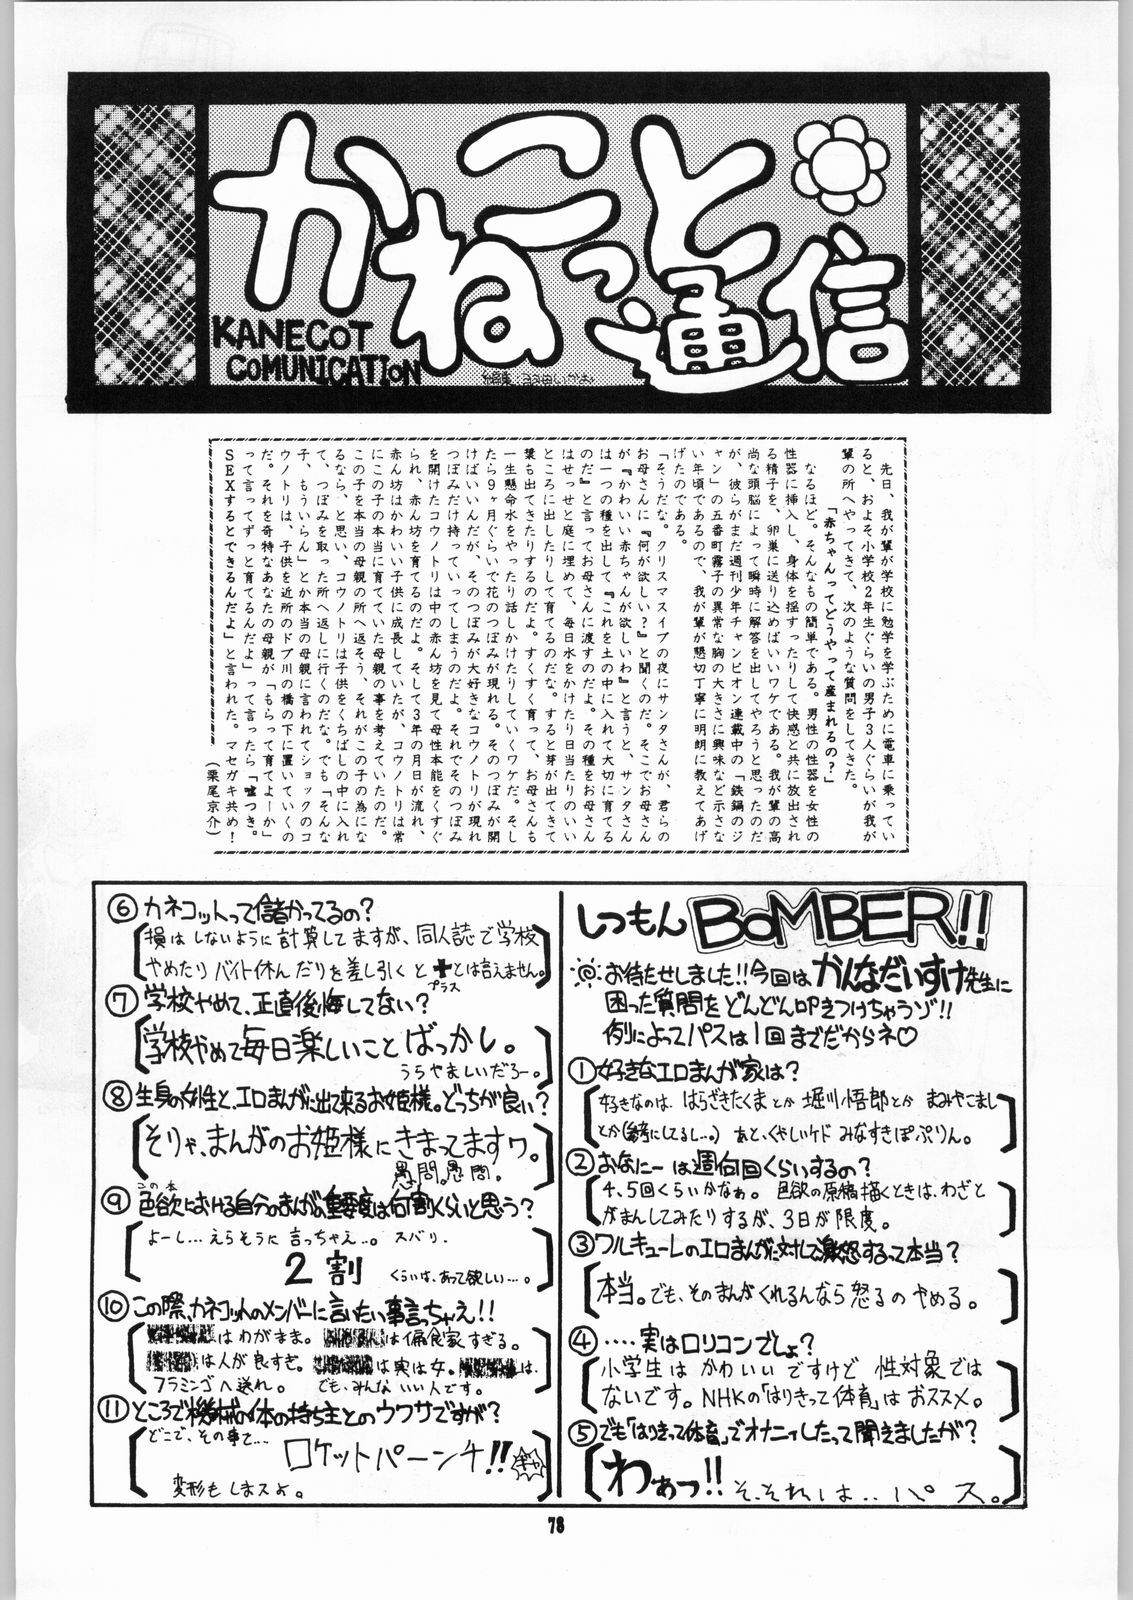 かねこっと通信
KANECOT
COMUNICATION
先日、我が輩が学校に勉学を学ぶために電車に乗ってい
ると、およそ小学校2年生ぐらいの男子3人ぐらいが我が
輩の所へやってきて、次のような質問をしてきた。
「赤ちゃんってどうやって産まれるの?」
なるほど。そんなもの簡単である。男性の性器を女性の
性器に挿入し、身体を揺すったりして快感と共に放出され
る精子を、卵巣に送り込めばいいワケである。我が輩の高
尚な頭脳によって瞬時に解答を出してやろうと思ったのだ
が、彼らがまだ週刊少年チャンピオン連載中の「鉄鍋のジ
ャン」の五番町霧子の異常な胸の大きさに興味など示さな
い年頃であるので、我が輩が懇切丁寧に明朗に教えてあげ
げたのである。
「そうだな。クリスマスイブの夜にサンタさんが、君らの
お母さんに『何が欲しい?』と聞くのだ。そこでお母さん
が『かわいい赤ちゃんが欲しいわ』と言うと、サンタさん
は一つの種を出して、『これを土の中に入れて大切に育てる
のだ』と言ってお母さんに渡すのだよ。その種をお母さん
はせっせと庭に埋めて、毎日水をかけたり日当たりのいい
ところに出したりして育てるのだな。すると芽が出てきて
葉も出てきたりするのだよ。すくすく育って、お母さんも
一生懸命水をやったり話しかけたりしていくワケだ。そし
たら9ヶ月ぐらいで花のつぼみが現れる。そのつぼみが開
けばいいんだが、そのつぼみが大好きなコウノトリが現れ
つぼみだけ持っていってしまうのだよ。それでそのつぼみ
を開けたコウノトリは中の赤ん坊を見て母性本能をくすぐ
られ、赤ん坊を育てるのだよ。そして3年の月日が流れ、
赤ん坊はかわいい子供に成長していたが、コウノトリは常
にこの子の本当に育てていた母親の事を考えていたのだ。
この子を本当の母親の所へ返そう、それがこの子の為にな
るなら、と思い、コウノトリは子供をくちばしの中に入れ
て、つぼみを取った所へ返しに行くのだな。でも「そんな
子、もういらん」とか本当の母親に言われてショックのコ
ウノトリは、子供を近所のドブ川の橋の下に置いていくの
だ。それを奇特なあなたの母親が「もらって育てよーか」
って言ってずっと育てるんだよ」って言ったら「嘘つき。
SEXするとできるんだよ」と言われた。マセガキ共め!
(栗尾京介)
しつもんBOMBER!!
お待たせしました!!今回はかんなだいすけ先生に
困った質問をどんどん叩きつけちゃうゾ!!
例によってパスは1回までだからネ♡
①好きなエロまんが家は?
好きなのは、はらざきたくまとか 堀川悟郎とか まみやこまし
とか(参考にしてるし…) あと、くやしいケド みなすきぽぷりん。
②おなにーは週何回くらいするの?
4、5回くらいかなぁ。 色欲の原稿描くときは、わざと
がまんしてみたりするが、3日が限度。
③ワルキューレのエロまんがに対して激怒するって本当?
本当。でも、そのまんがくれるんなら怒るのやめる。
④‥‥実はロリコンでしょ?
小学生は かわいいですけど 性対象では
ないです。NHKの「はりきって体育」はおススメ。
⑤でも「はりきって体育」でオナニィしたって聞きましたが?
わぁっ!! そ、それは‥パス。
⑥カネコットって儲かってるの?
損はしないように計算してますが、同人誌で学校
やめたりバイト休んだりを差し引くと+とは言えません。
プラス
⑦学校やめて、正直後悔してない?
学校やめて毎日楽しいことばっかし。
うらやましいだろー。
⑧生身の女性と、エロまんがに出て来るお姫様。どっちが良い?
そりゃ、まんがのお姫様にきまってますワ。
愚問。愚問。
この本
⑨色欲における自分のまんがの重要度は何割くらいと思う?
よーし…えらそうに言っちゃえ…。 スバリ、
2割 くらいは、あって欲しい…。
⑩この際、カネコットのメンバーに言いたい事言っちゃえ!!
はわがまま。 は偏食家すぎる。
は人が良すぎ。 は実は女。 は、
フラミンゴへ送れ。 でも、みんないい人です。
⑪ところで機械の体の持ち主とのウワサですが?
どこで、その事を…
ロケットパーンチ!!
変形もしまスよ。
78